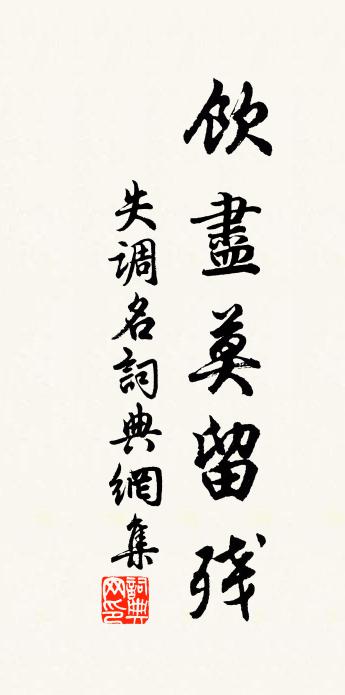 飲盡莫留残
失调名詞典網集
詞典网印